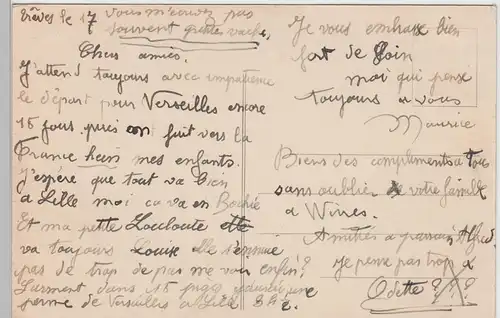 Trèves le 17
vous m'ecrivez pas
souvent petite vache,
Chers amies.
J'attend toujours avec impatience
le départ pour Verseilles encore
15 jours puis on fuit vers la
France hein mes enfants.
J'espère que tout va bien
a Lille moi ca va en Bochie
Et ma petite Louloute elle
va toujours elle s'ennuie
pas de trop de pas me voir enfin?
dans 15 jours une
perme de Verseilles a Lille
Je vous embrasse bien
fort de loin
moi qui pense
toujours a vous
Maurice
Biens des compliments a Tous
sans oublier de votre famille
a Wimes.
Amitiés a parrain Alfred.
Je pense pas trop a
Odette ? ? ?